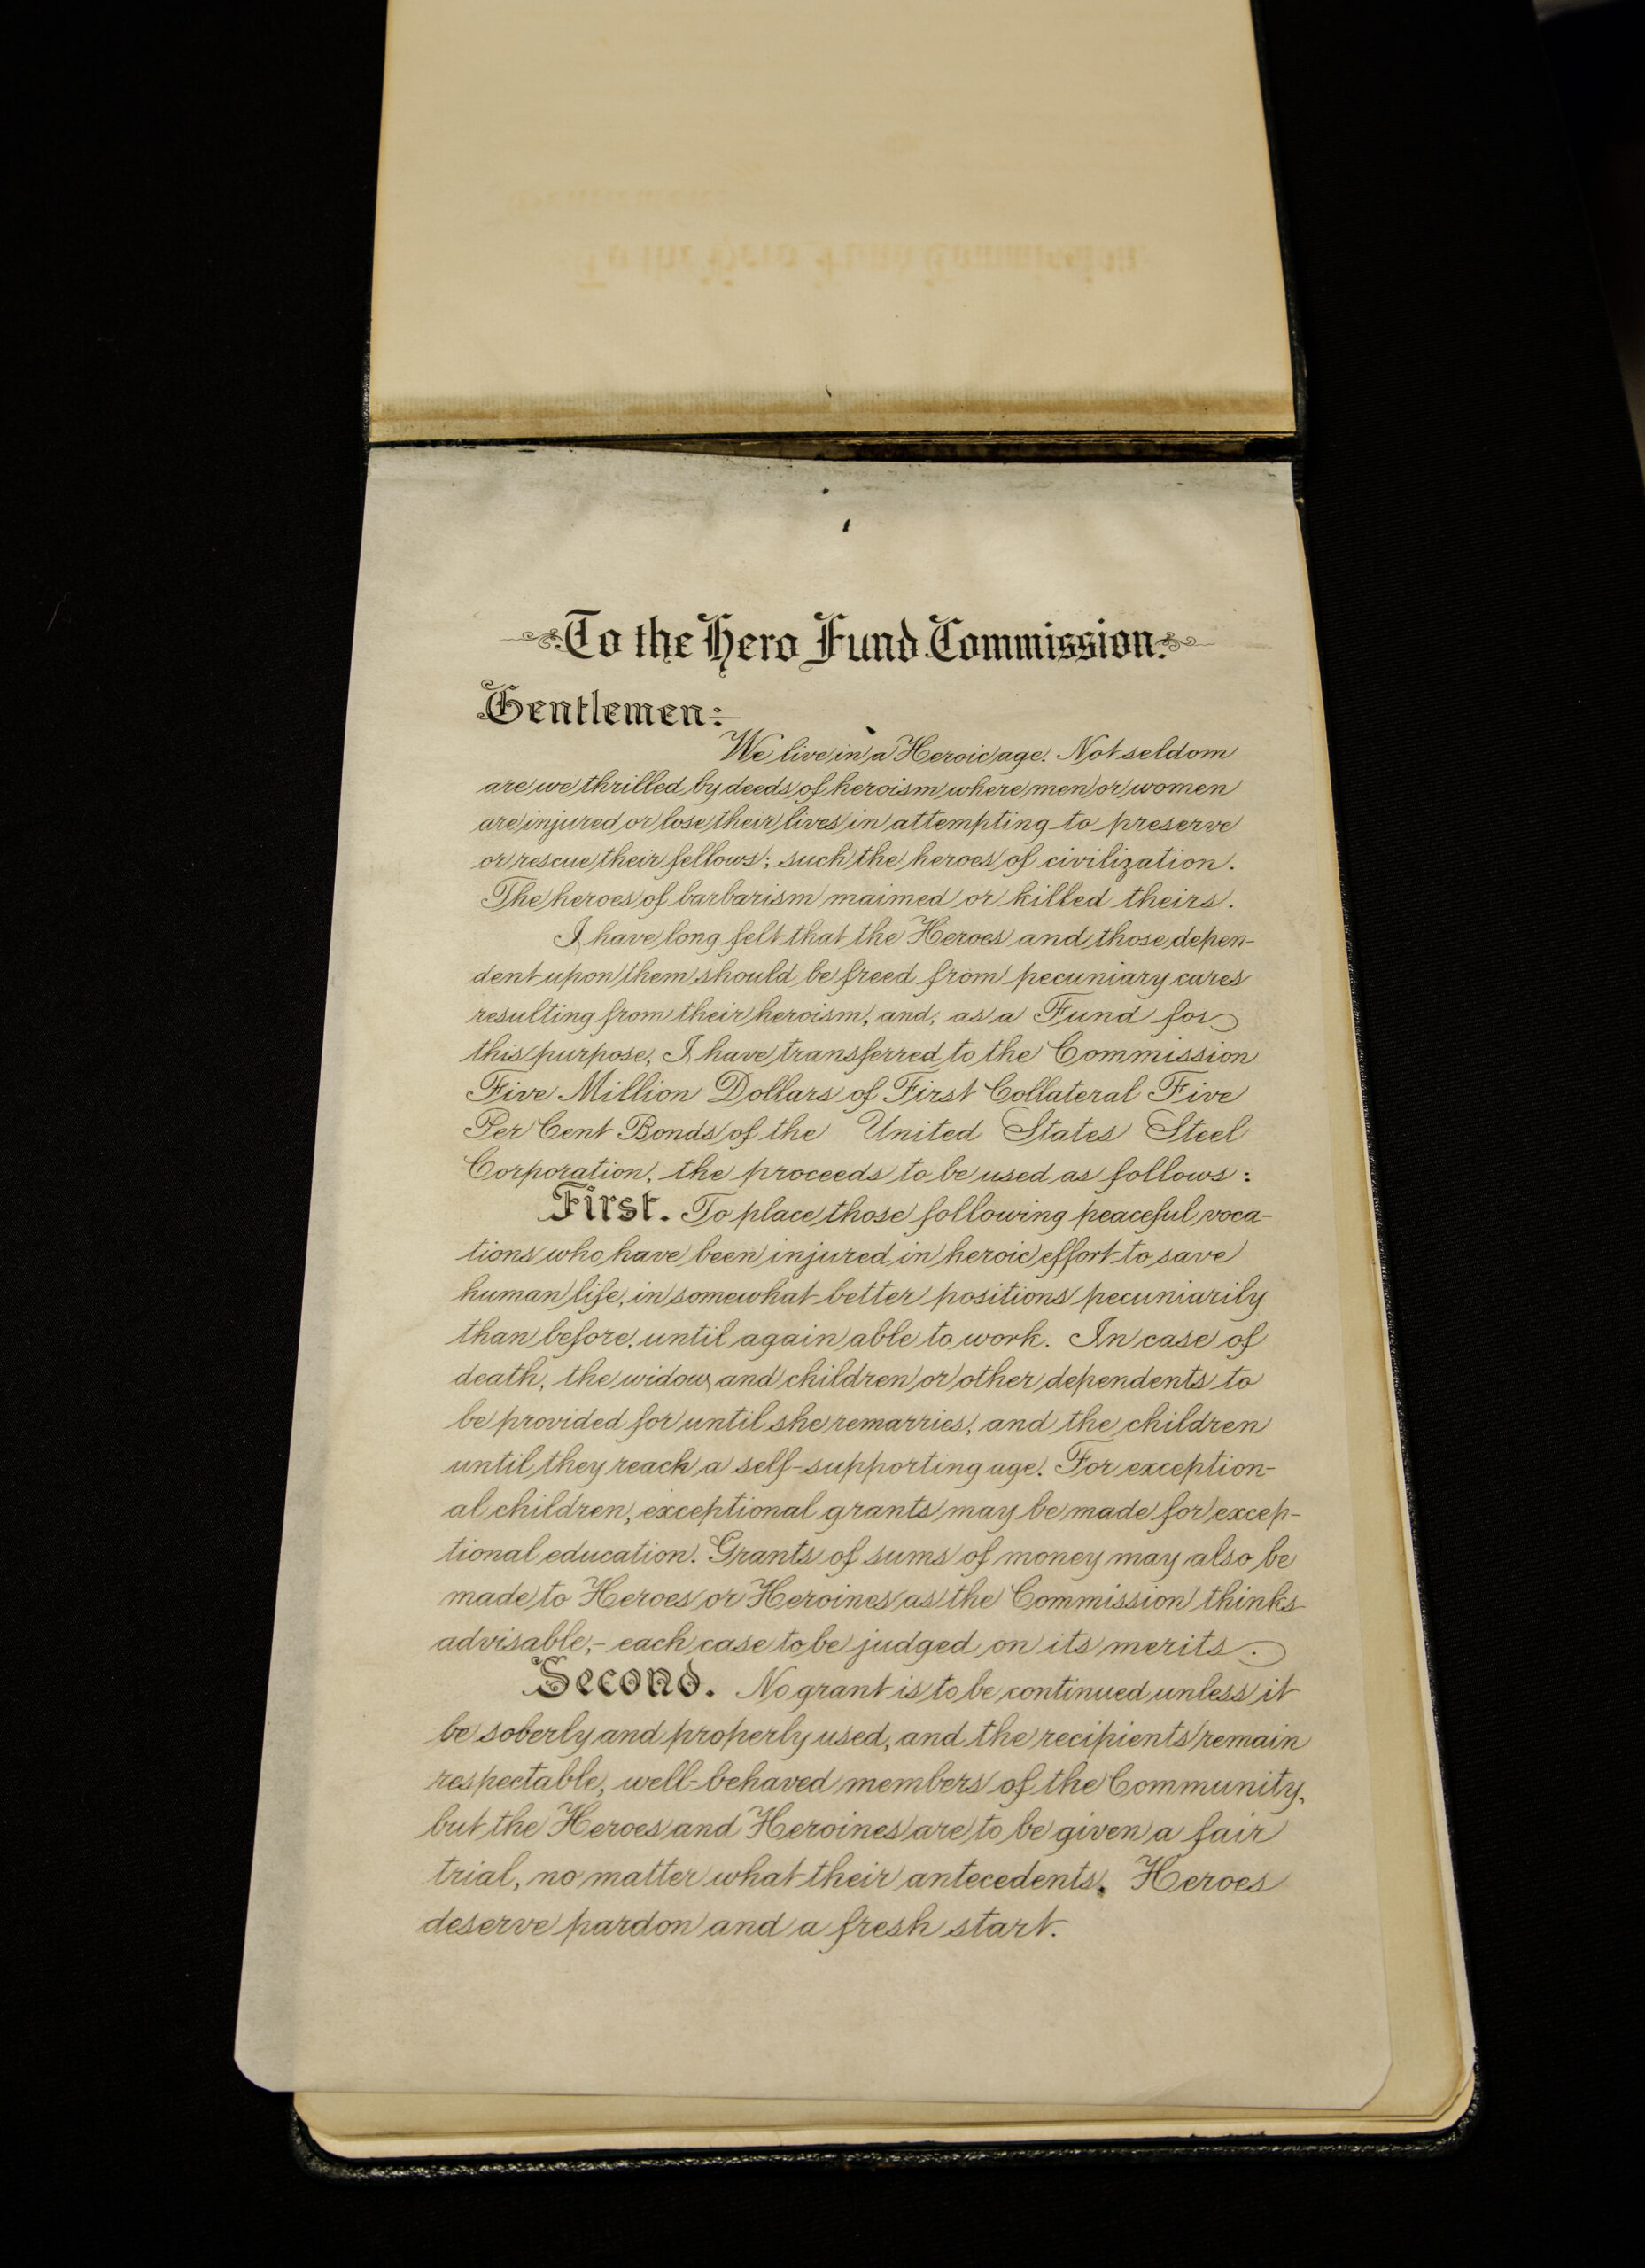 To the Hero Fund Commission.
Gentlemen:
We live in a Heroic age. Not seldom
are we thrilled by deeds of heroism where men or women
are injured or lose their lives in attempting to preserve
or rescue their fellows; such the heroes of civilization.
The heroes of barbarism maimed or killed theirs.
I have long felt that the Heroes and those depen-
dent upon them should be freed from pecuniary cares
resulting from their heroism, and, as a Fund for
this purpose, I have transferred to the Commission
Five Million Dollars of First Collateral Five
Per Cent Bonds of the United States Steel
Corporation, the proceeds to be used as follows:
First. To place those following peaceful voca-
tions who have been injured in heroic effort to save
human life, in somewhat better positions pecuniarily
than before, until again able to work. In case of
death, the widow and children or other dependents to
be provided for until she remarries, and the children
until they reach a self-supporting age. For exception-
al children, exceptional grants may be made for excep-
tional education. Grants of sums of money may also be
made to Heroes or Heroines as the Commission thinks
advisable,- each case to be judged on its merits.
Second. No grant is to be continued unless it
be soberly and properly used, and the recipients remain
respectable, well-behaved members of the Community,
but the Heroes and Heroines are to be given a fair
trial, no matter what their antecedents. Heroes
deserve pardon and a fresh start.